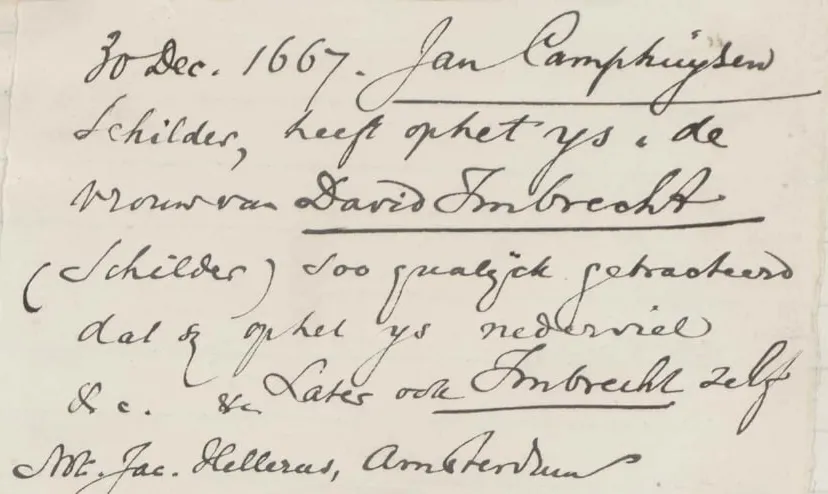 30 Dec. 1667. Jan Camphuÿsen
Schilder, heeft ophet ys, de
vrouw van David Imbrecht
(Schilder) soo qualÿck getracteerd
dat sy ophet ys nederviel
&c. &c Later ook Imbrecht zelf
Not. Jac. Hellerus, Amsterdam